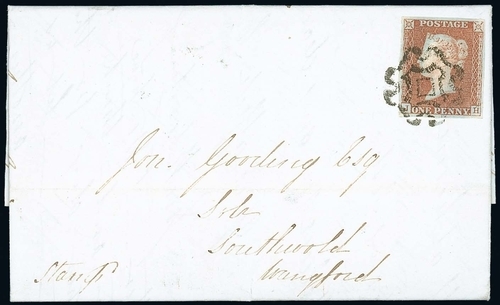 POSTAGE
J H
ONE PENNY
Jon. Gooding Esq
Solr
Southwold
Wangford
Stamp